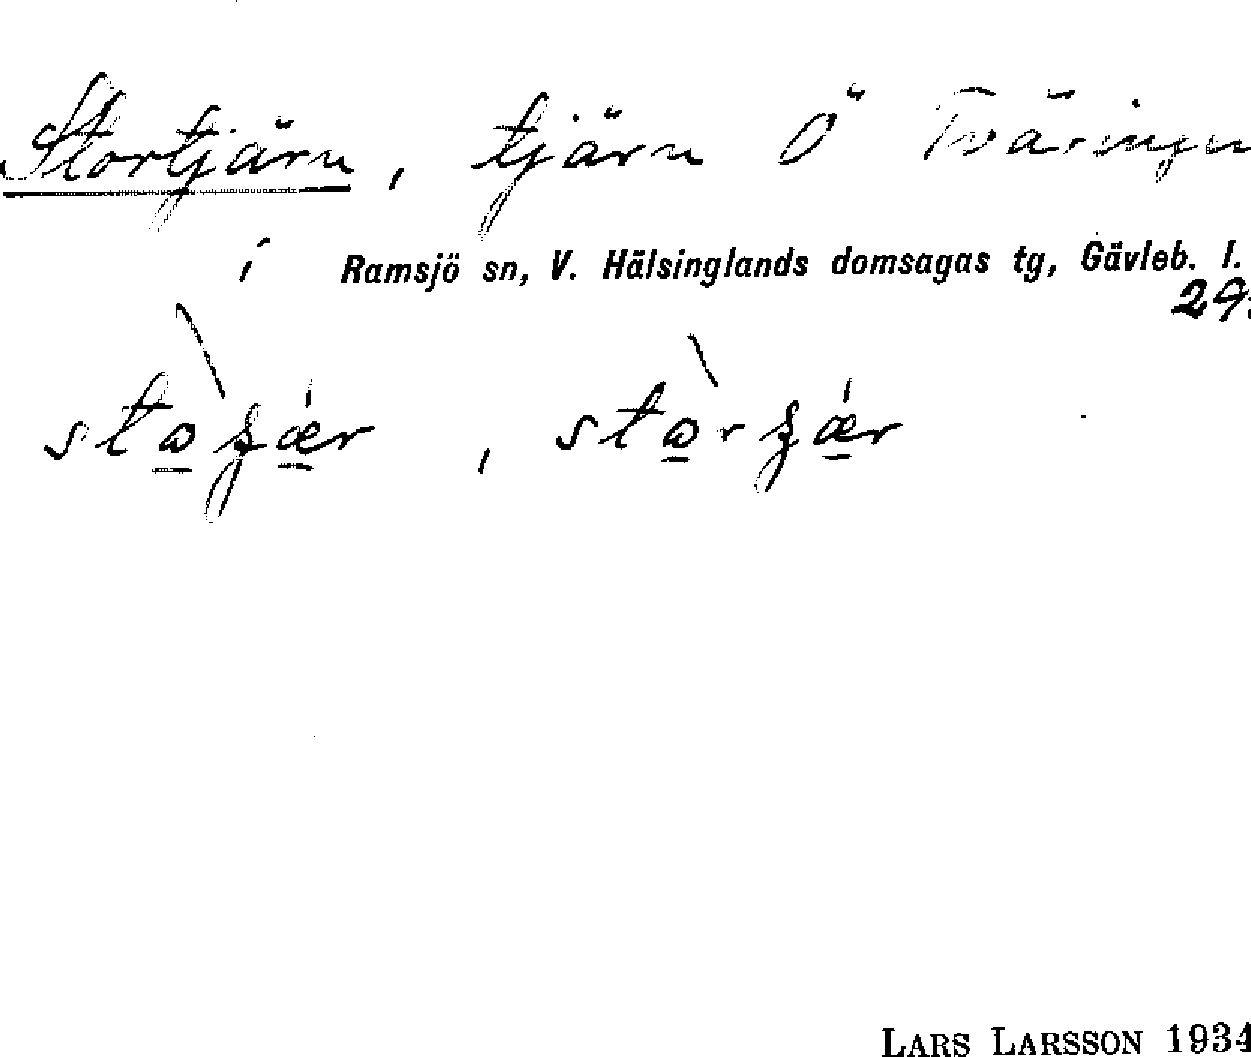 Stortjärn, tjärn Ö Tväringen
i Ramsjö sn, V. Hälsinglands domsagas tg, Gävleb. l.
29:
LARS LARSSON 1934